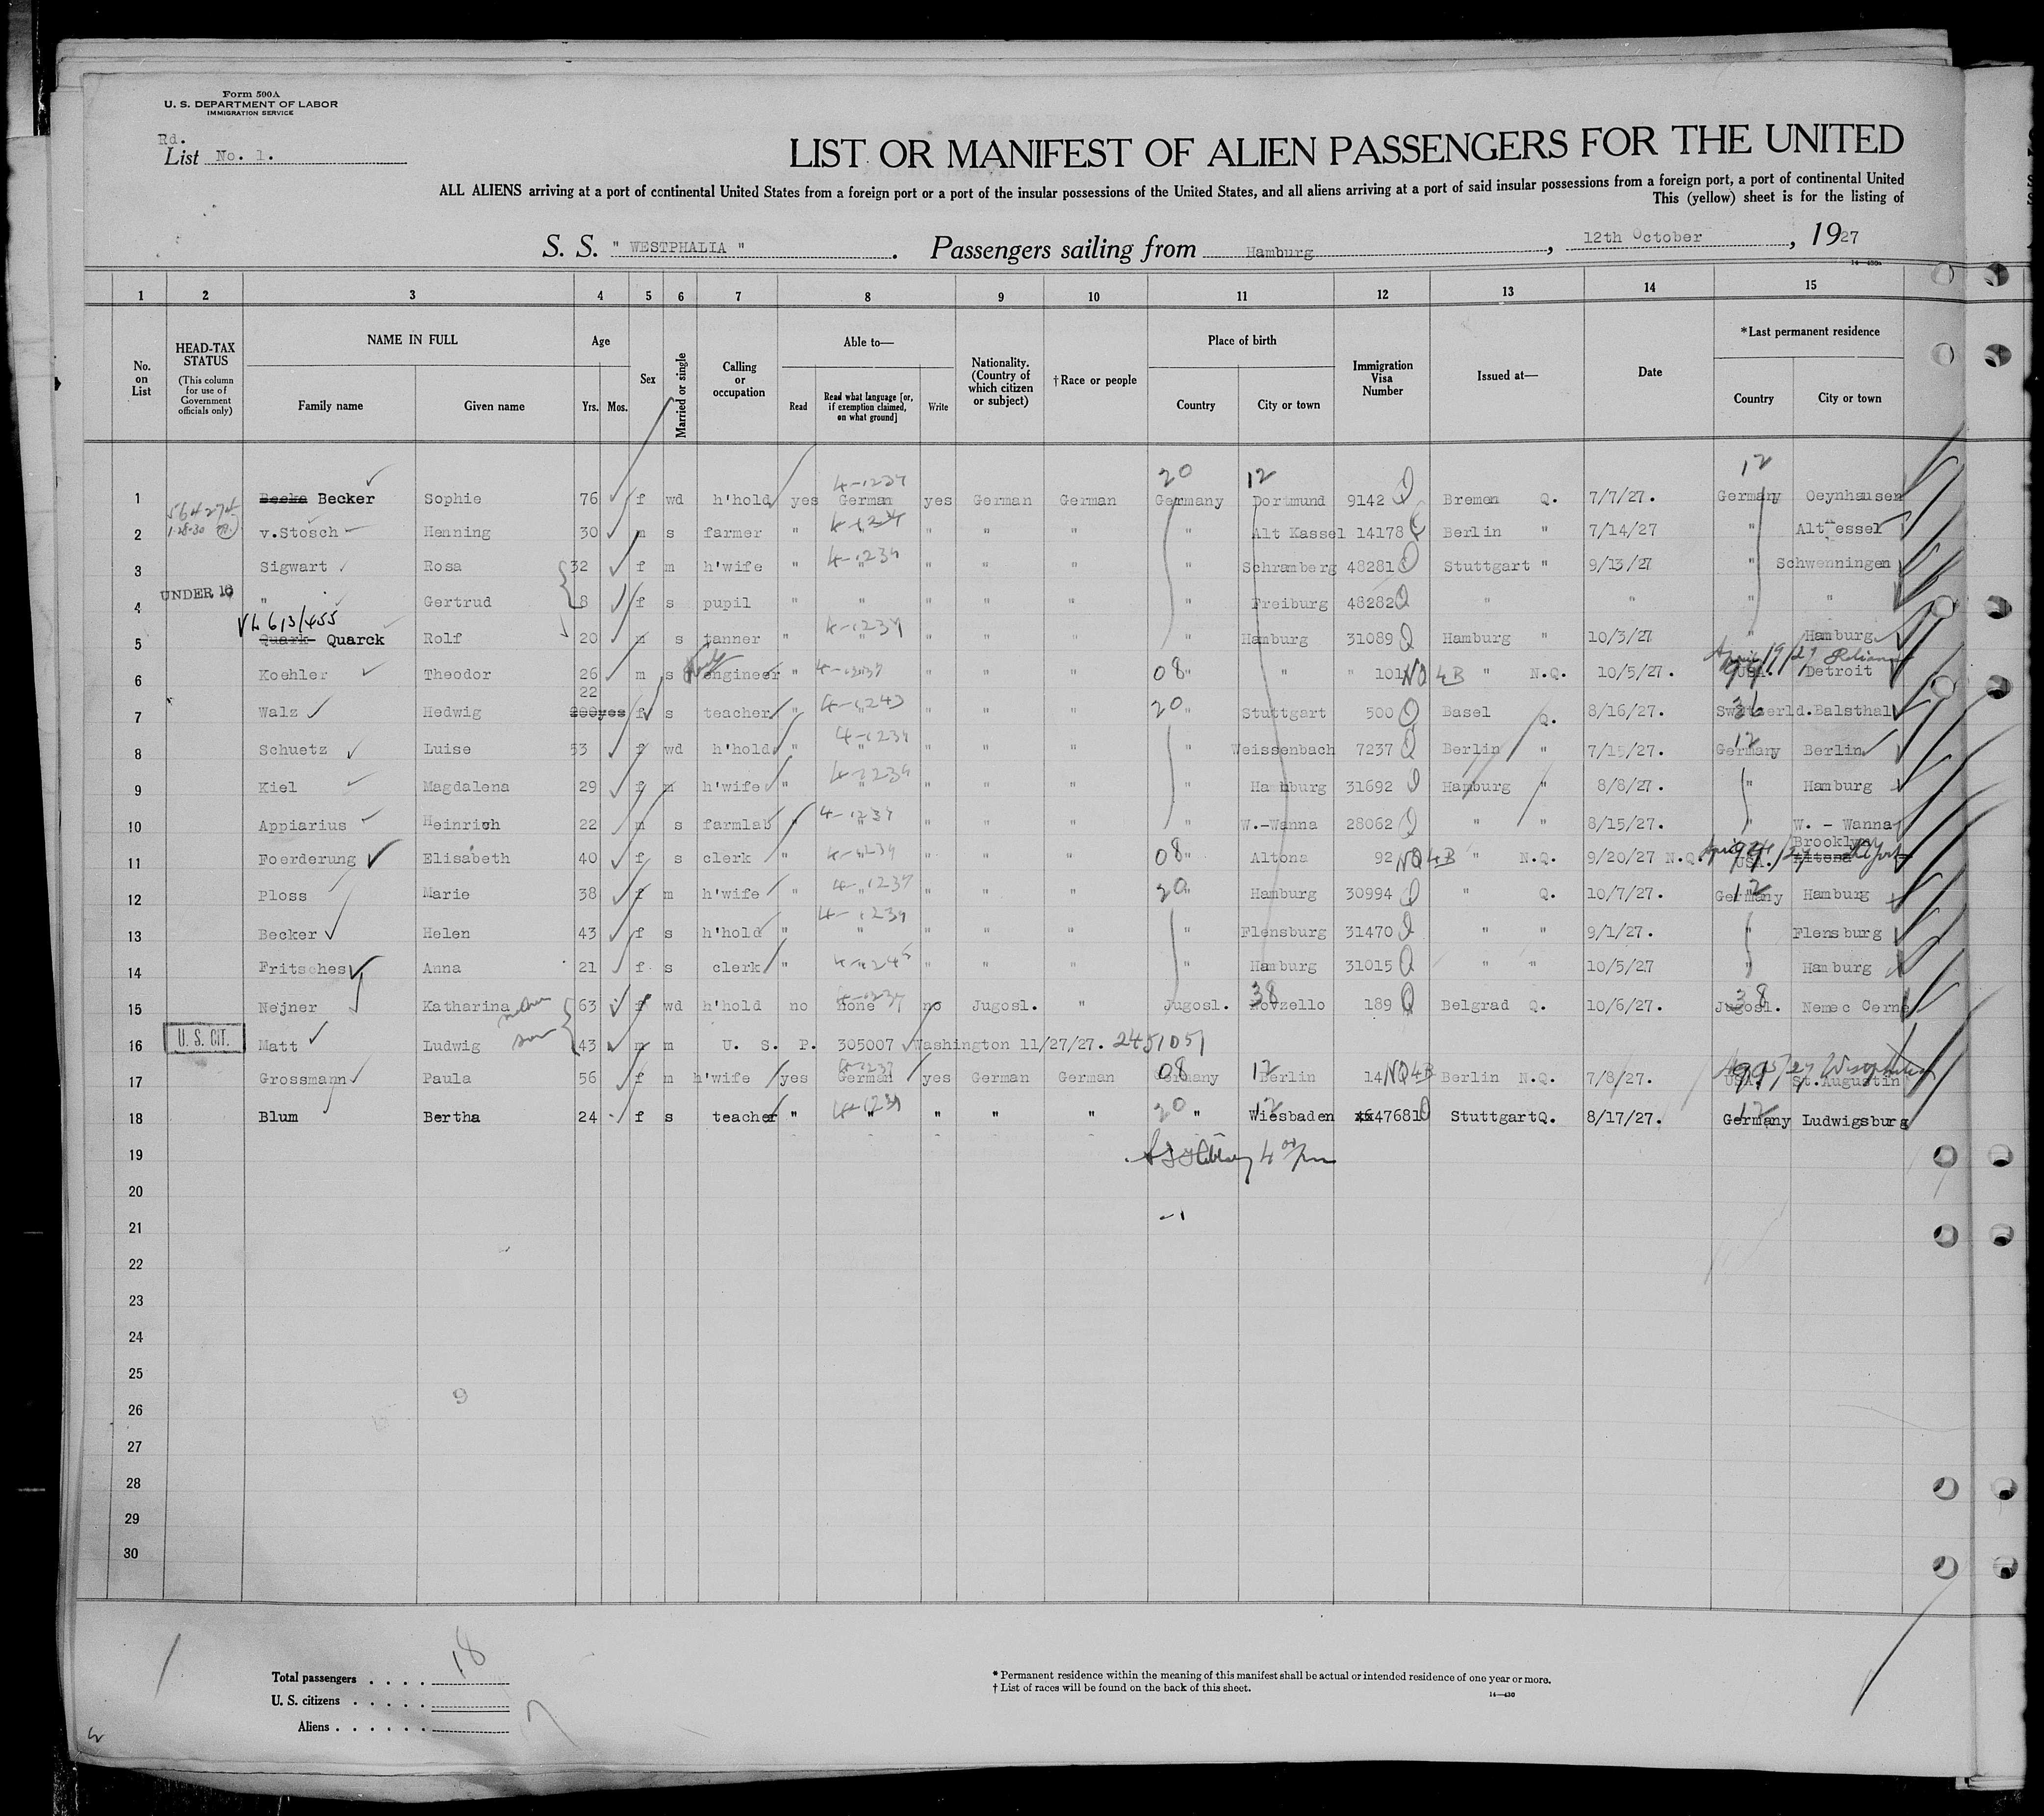 Form 500A
U. S. DEPARTMENT OF LABOR
IMMIGRATION SERVICE
Rd.
List No. 1.
LIST OR MANIFEST OF ALIEN PASSENGERS FOR THE UNITED
ALL ALIENS arriving at a port of continental United States from a foreign port or a port of the insular possessions of the United States, and all aliens arriving at a port of said insular possessions from a foreign port, a port of continental United
This (yellow) sheet is for the listing of
S. S. " WESTPHALIA " . Passengers sailing from Hamburg , 12th October , 1927
14—430a
1 2 3 4 5 6 7 8 9 10 11 12 13 14 15
No. on List
HEAD-TAX STATUS (This column for use of Government officials only)
NAME IN FULL Family name Given name
Age Yrs. Mos.
Sex
Married or single
Calling or occupation
Able to— Read Read what language [or, if exemption claimed, on what ground] Write
Nationality. (Country of which citizen or subject)
†Race or people
Place of birth Country City or town
Immigration Visa Number
Issued at—
Date
*Last permanent residence Country City or town
20 12 12
4-1234
1 Becke Becker Sophie 76 f wd h'hold yes German yes German German Germany Dortmund 9142 Q Bremen Q. 7/7/27. Germany Oeynhausen
564274
1-28-30
2 v.Stosch Henning 30 m s farmer " " " " " " Alt Kassel 14178 Q Berlin " 7/14/27 " Alt essel
3 Sigwart Rosa 32 f m h'wife " " " " " " Schramberg 48281 Q Stuttgart " 9/13/27 " Schwenningen
UNDER 16
4 " Gertrud 8 f s pupil " " " " " " Freiburg 48282 Q " " " "
VL 613/455
5 Quark Quarck Rolf 20 m s tanner " " " " " " Hamburg 31089 Q Hamburg " 10/3/27 " Hamburg
April 9/27
6 Koehler Theodor 26 m s engineer " 4-1234 " " " 08 " " " 101 NQ 4B " N.Q. 10/5/27. 99 USA. Detroit
22
7 Walz Hedwig 200yes f s teacher " 4-1243 " " " 20 " Stuttgart 500 Q Basel Q. 8/16/27. 36 Switzerld. Balsthal
8 Schuetz Luise 53 f wd h'hold " 4-1234 " " " " Weissenbach 7237 Q Berlin " 7/15/27. 12 Germany Berlin
9 Kiel Magdalena 29 f m h'wife " 4-1234 " " " " Hamburg 31692 Q Hamburg " 8/8/27. " Hamburg
10 Appiarius Heinrich 22 m s farmlab " 4-1234 " " " " W.-Wanna 28062 Q " " 8/15/27. " W. - Wanna
Brooklyn
11 Foerderung Elisabeth 40 f s clerk " 4-1234 " " " 08 " Altona 92 NQ 4B " N.Q. 9/20/27 N.Q. USA. Altona
12 Ploss Marie 38 f m h'wife " 4-1234 " " " 20 " Hamburg 30994 Q " Q. 10/7/27. 12 Germany Hamburg
13 Becker Helen 43 f s h'hold " 4-1234 " " " " Flensburg 31470 Q " " 9/1/27. " Flensburg
14 Fritsches Anna 21 f s clerk " " " " " Hamburg 31015 Q " " 10/5/27 " Hamburg
15 Nejner Katharina 63 f wd h'hold no None no Jugosl. " Jugosl. 38 Rovzello 189 Q Belgrad Q. 10/6/27. 38 Jugosl. Nemec Cerne
son
U. S. CIT.
16 Matt Ludwig 43 m m U. S. P. 305007 Washington 11/27/27. 2451051
17 Grossmann Paula 56 f m h'wife yes German yes German German 08 Germany 12 Berlin 14 NQ 4B Berlin N.Q. 7/8/27. USA. St.Augustin
18 Blum Bertha 24 f s teacher " 4-1234 " " " " 20 " 12 Wiesbaden 47681 Q Stuttgart Q. 8/17/27. 12 Germany Ludwigsburg
19
20
21
22
23
24
25
26
27
28
29
30
9
Total passengers . . . . 18
U. S. citizens . . . . .
Aliens . . . . . .
* Permanent residence within the meaning of this manifest shall be actual or intended residence of one year or more.
† List of races will be found on the back of this sheet.
14—430